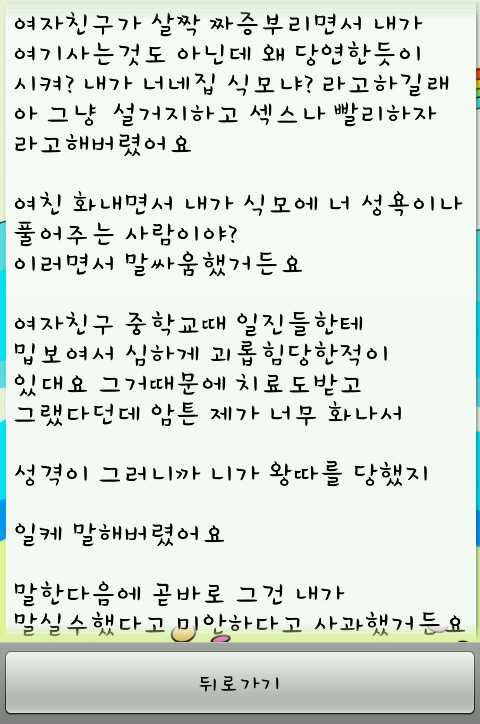 여자친구가 살짝 짜증부리면서 내가
여기사는것도 아닌데 왜 당연한듯이
시켜? 내가 너네집 식모냐? 라고하길래
아 그냥 설거지하고 섹스나 빨리하자
라고해버렸어요
여친 화내면서 내가 식모에 너 성욕이나
풀어주는 사람이야?
이러면서 말싸움했거든요
여자친구 중학교때 일진들한테
밉보여서 심하게 괴롭힘당한적이
있대요 그거때문에 치료도받고
그랬다던데 암튼 제가 너무 화나서
성격이 그러니까 니가 왕따를 당했지
일케 말해버렸어요
말한다음에 곧바로 그건 내가
말실수했다고 미안하다고 사과했거든요
뒤로가기